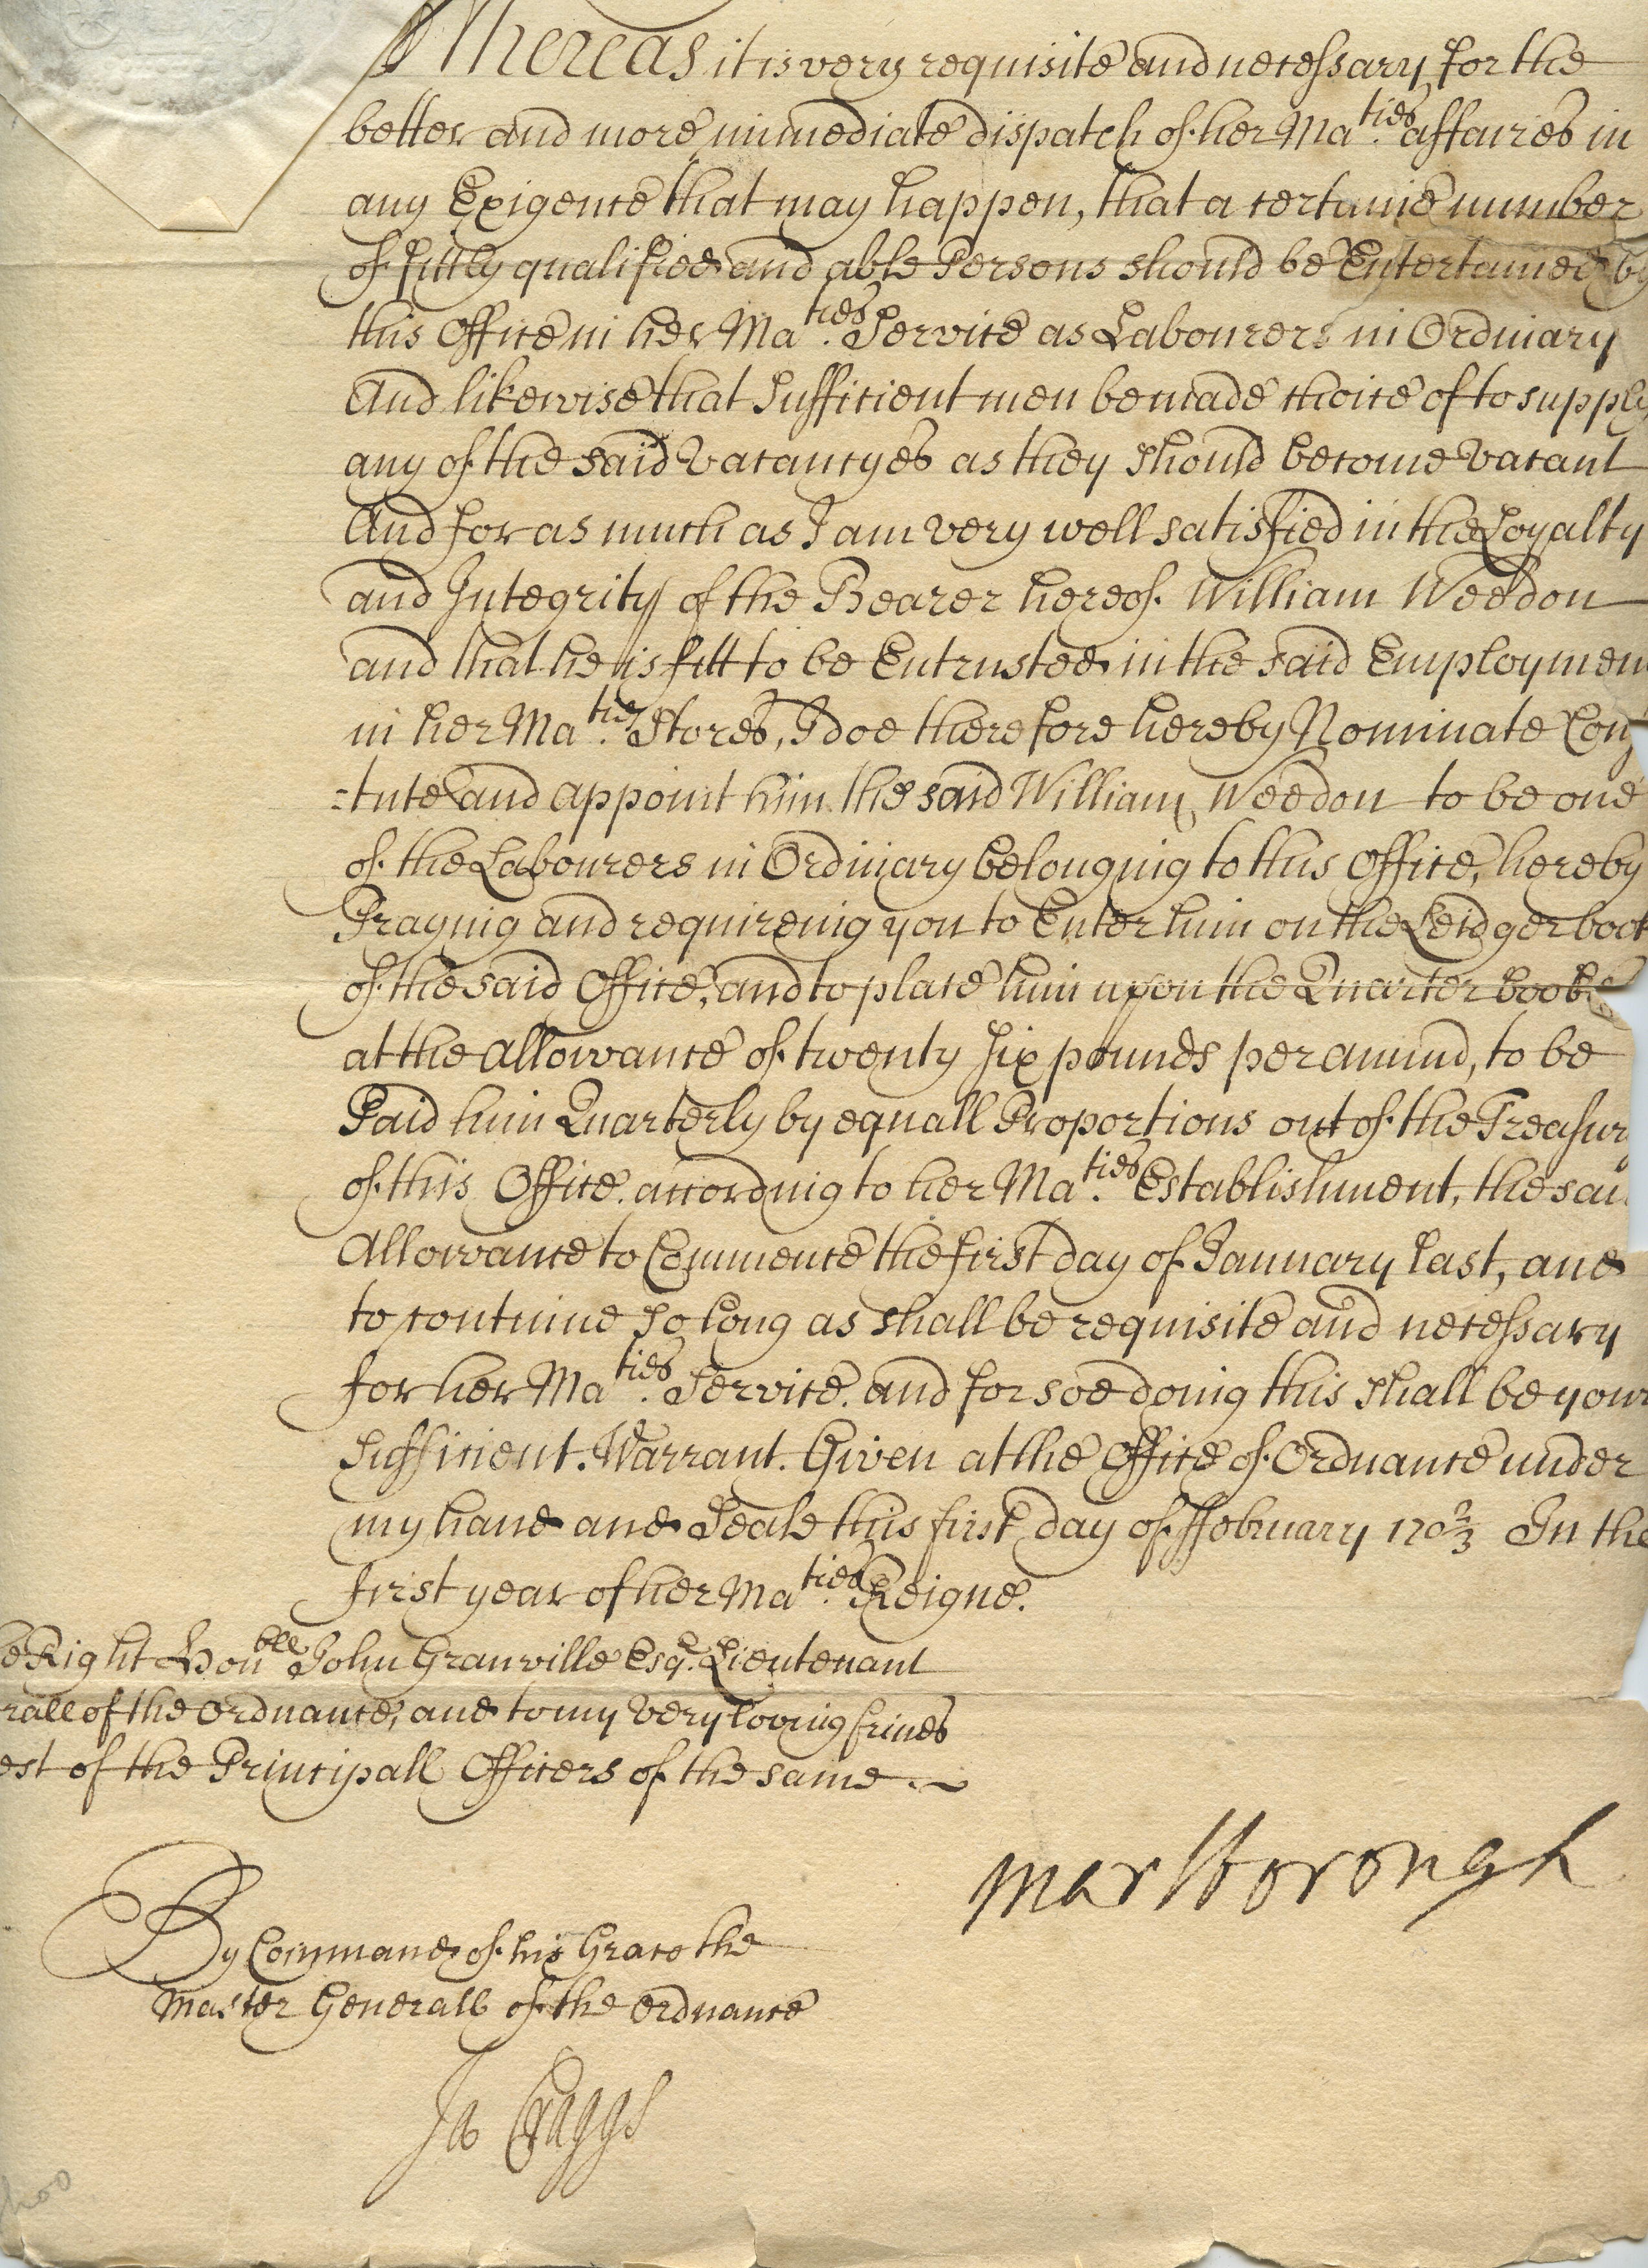 Whereas it is very requisite and necessary for the
better and more immediate dispatch of her Ma.ties affaires in
any Exigence that may happen, that a certaine number
of fittly qualified and able Persons should be Entertained by
this Office in her Ma.ties Service as Labourers in Ordinary
And likewise that Sufficient men be made choice of to supply
any of the said Vacancyes as they should become Vacant
And for as much as I am very well satisfied in the Loyalty
and Integrity of the Bearer hereof William Weedon
and that he is fitt to be Entrusted in the said Employmen
in her Ma.ties Stores, I doe therefore hereby Nominate Con
=tute and appoint him the said William Weedon to be one
of the Labourers in Ordinary belonging to this Office, hereby
Praying and requireing you to Enter him on the Leidger book
of the said Office, and to place him upon the Quarter books
at the Allowance of twenty Six pounds per annum, to be
Paid him Quarterly by equall Proportions out of the Treasury
of this Office according to her Ma.ties Establishment, the said
Allowance to Commence the first day of January last, and
to continue So long as shall be requisite and necessary
for her Ma.ties Service. and for soe doing this shall be your
Sufficient Warrant. Given at the Office of Ordnance under
my hand and Seale this first day of ffebruary 170 2/3 In the
first year of her Ma.ties Reigne.
e Right Hon.ble John Granville Esq.r Lieutenant
rall of the Ordnance, and to my very loving frinds
est of the Principall Officers of the same
Marlborough
By Command of his Grace the
Master Generall of the Ordnance
Ja Craggs